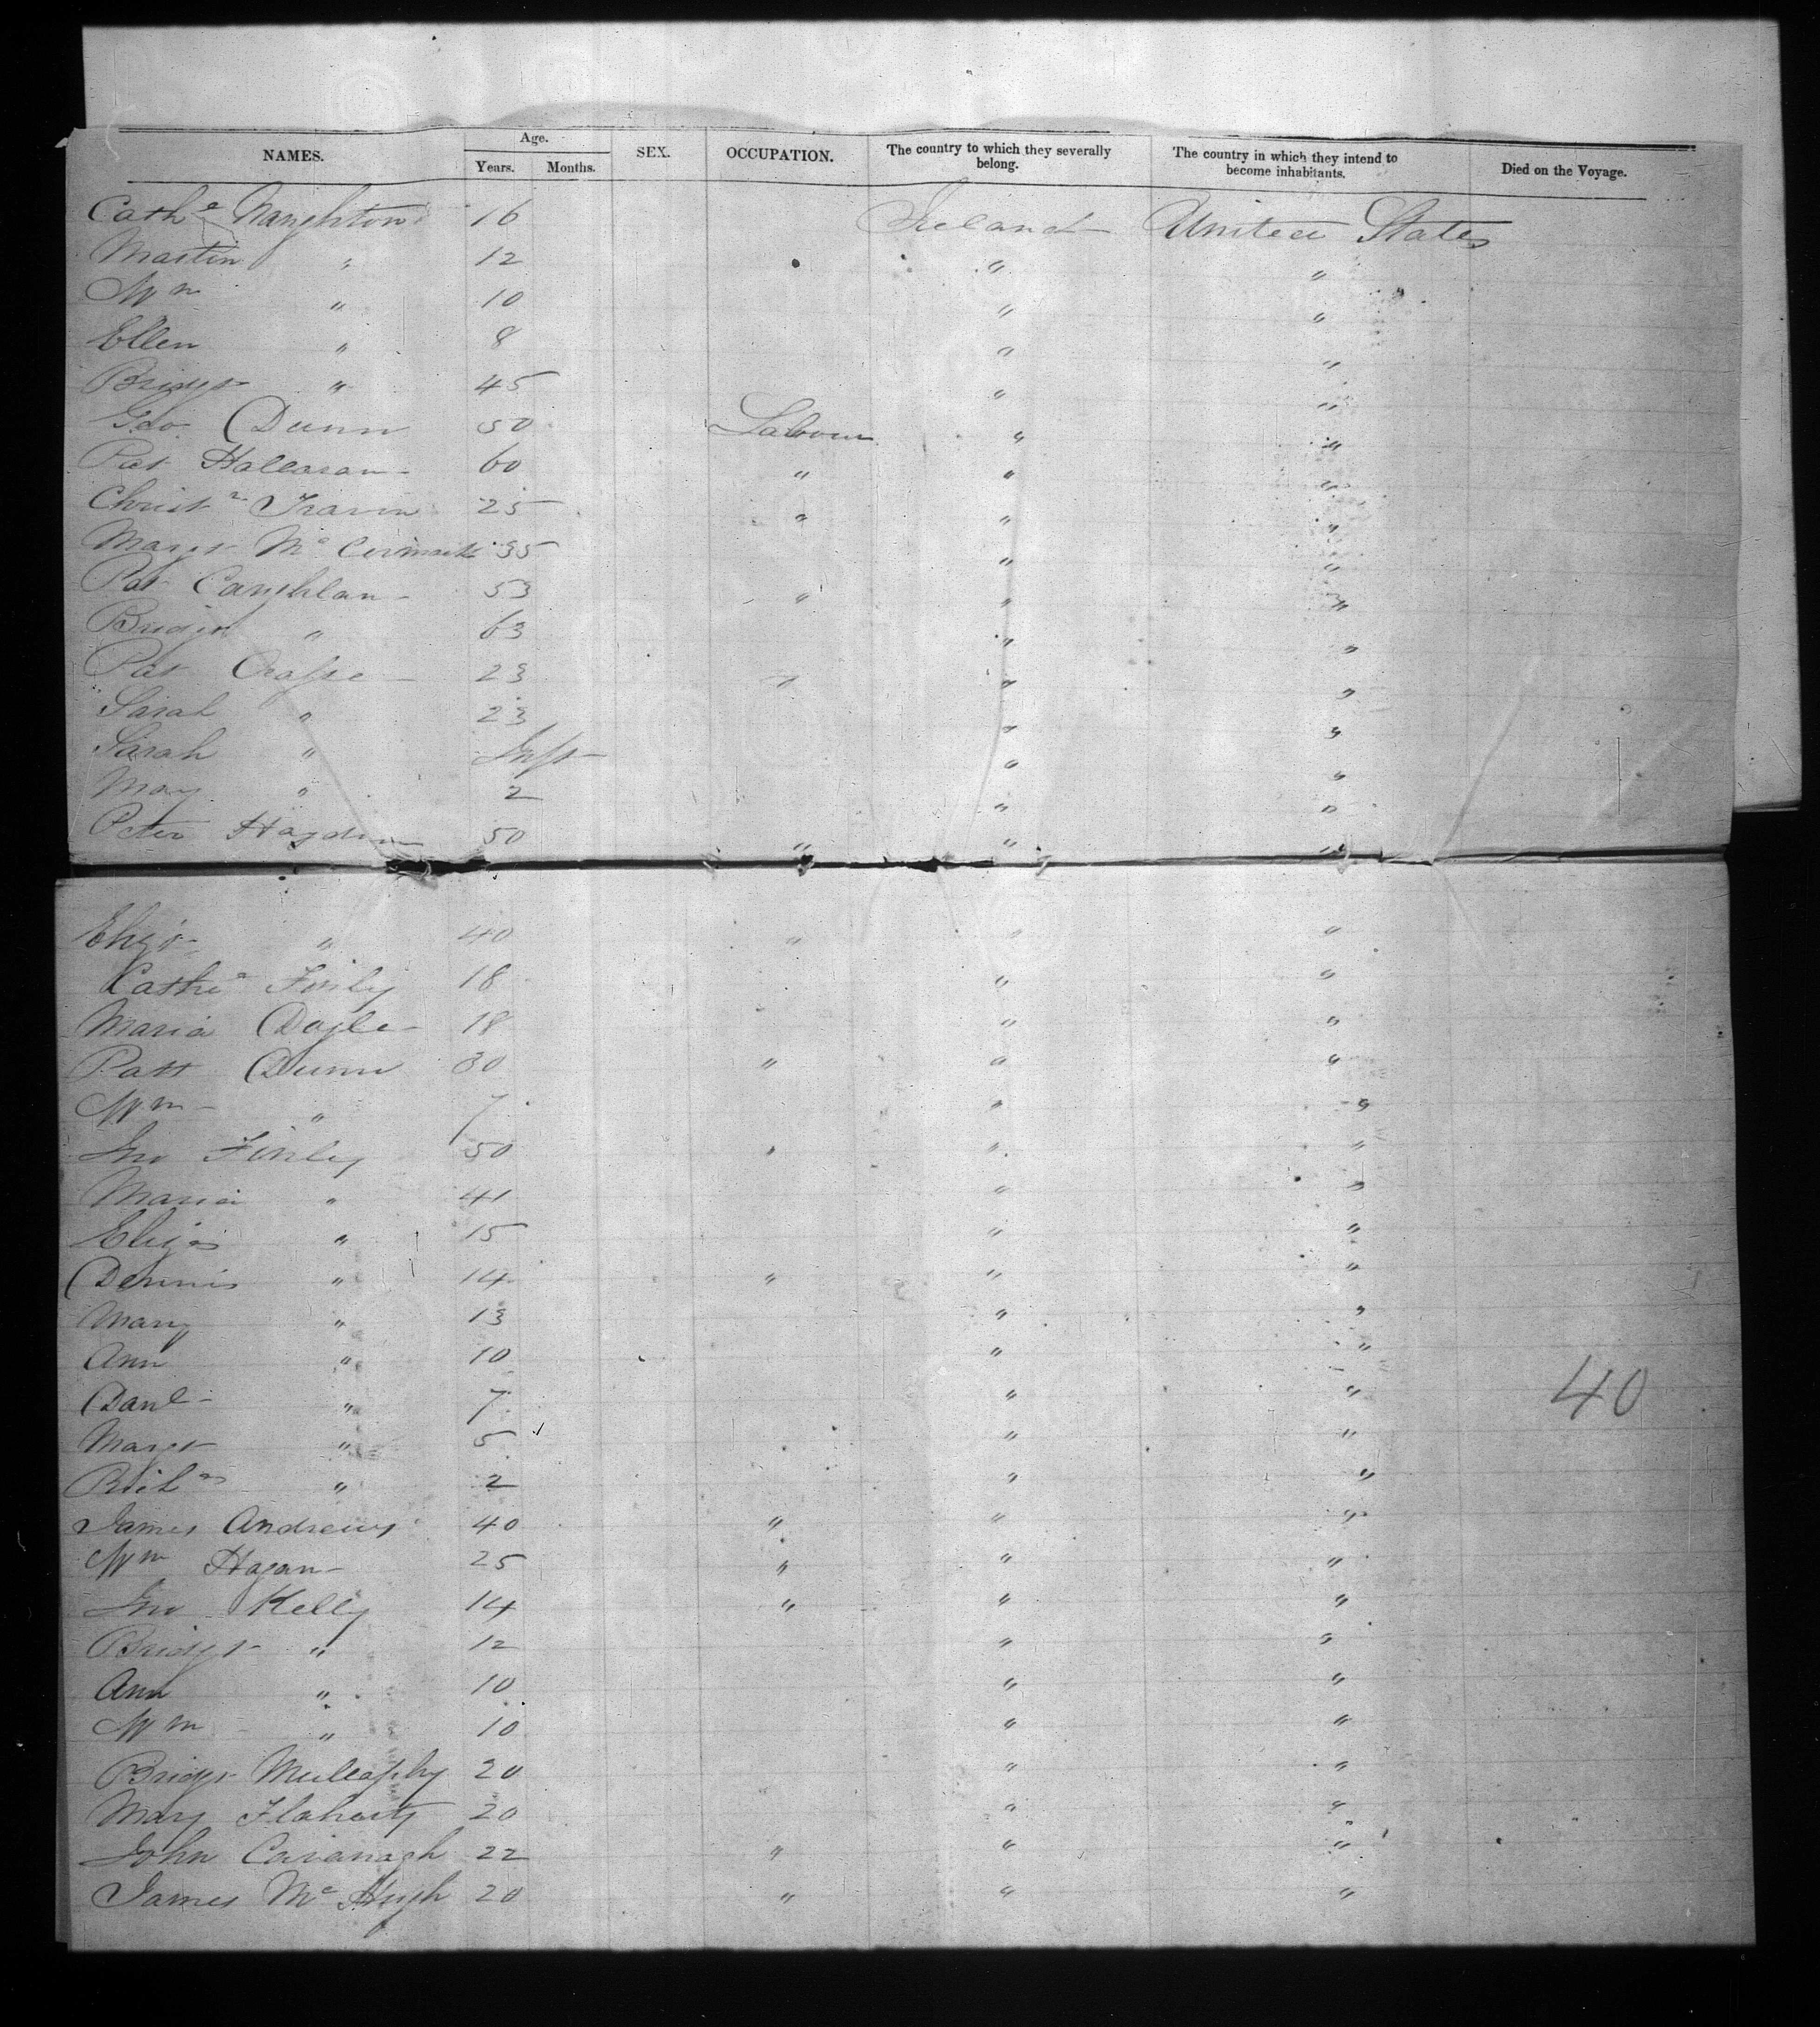 NAMES. Age. Years. Months. SEX. OCCUPATION. The country to which they severally belong. The country in which they intend to become inhabitants. Died on the Voyage.
Cathe Naughton 16 Ireland United States
Martin " 12 " "
Wm " 10 " "
Ellen " 8 " "
Bridgt " 45 " "
Geo Dunn 50 Labour " "
Pat Halloran 60 " " "
Christr Travin 25 " " "
Margt Mc Cormack 35 " "
Pat Caughlan 53 " " "
Bridgt " 63 " "
Pat 23 " " "
Sarah " 23 " "
Sarah " Inft " "
Mary " 2 " "
Peter Hayden 50 " " "
Eliza " 40 " " "
Cathe Finley 18 " "
Maria Doyle 18 " "
Patt Dunn 30 " " "
Wm " 7 " "
Jno Finley 50 " " "
Maria " 41 " "
Eliza " 15 " "
Dennis " 14 " " "
Mary " 13 " "
Ann " 10 " "
Danl " 7 " " 40
Margt " 5 " "
" 2 " "
James Andrews 40 " " "
Wm Hagan 25 " " "
Jno Kelly 14 " " "
Bridgt " 12 " "
Ann " 10 " "
Wm " 10 " "
Bridgt 20 " "
Mary Flaharty 20 " "
John Cavanagh 22 " " "
James Mc Hugh 20 " " "